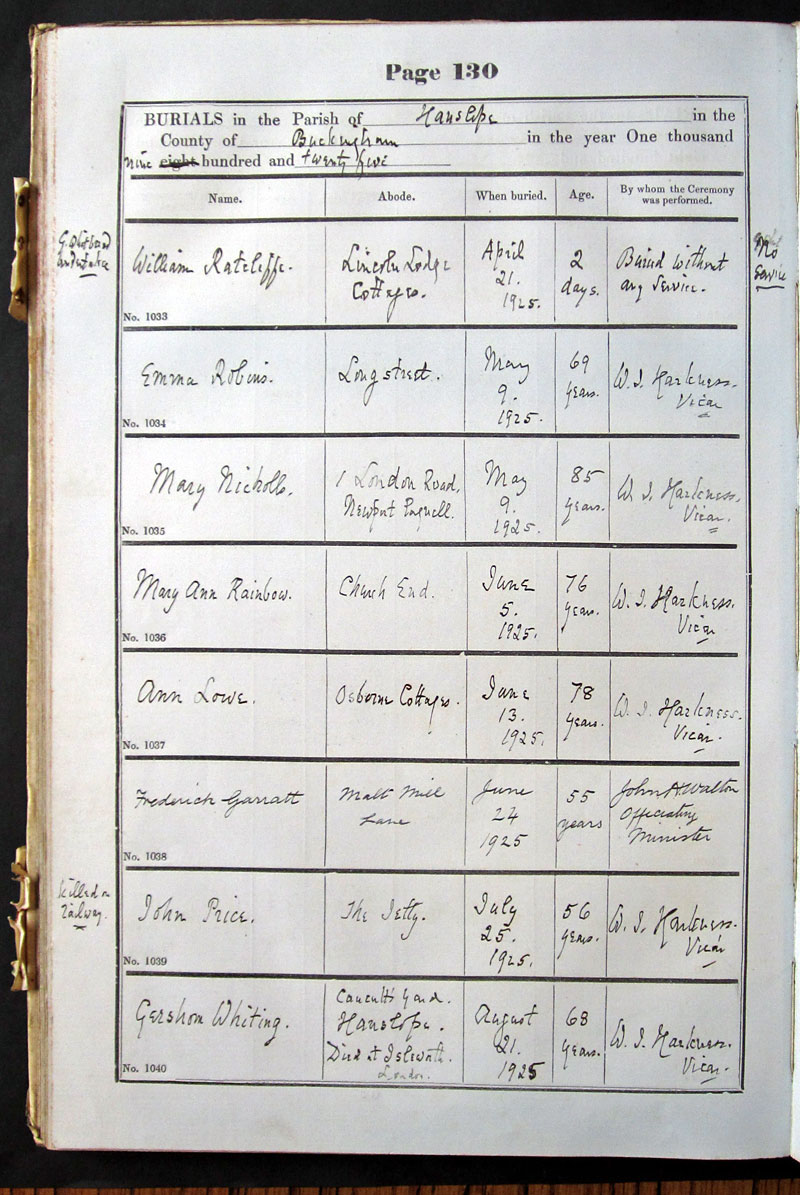 Page 130
BURIALS in the Parish of Hanslope in the
County of Buckingham in the year One thousand
nine eight hundred and twenty five
Name. Abode. When buried. Age. By whom the Ceremony was performed.
William Ratcliffe.
Lincoln Lodge
Cottages.
April
21.
1925.
2
days.
Buried without
any Service.
No
Service
No. 1033
Emma Robins.
Long street.
May
9.
1925.
69
years.
W. J. Harkness.
Vicar
No. 1034
Mary Nicholls.
1 London Road,
Newport Pagnell.
May
9.
1925.
85
years.
W. J. Harkness.
Vicar.
No. 1035
Mary Ann Rainbow.
Church End.
June
5.
1925.
76
years.
W. J. Harkness.
Vicar
No. 1036
Ann Lowe.
Osborne Cottages.
June
13.
1925.
78
years.
W. J. Harkness.
Vicar.
No. 1037
Frederick Garratt
Malt Mill
Lane
June
24
1925
55
years
John A. Walton
Officiating
Minister
No. 1038
Killed on
railway.
John Price.
The Jetty.
July
25.
1925.
56
years.
W. J. Harkness.
Vicar
No. 1039
Gershom Whiting.
Yard.
Hanslope.
Died at Isleworth.
London.
August
21.
1925
68
years.
W. J. Harkness.
Vicar.
No. 1040